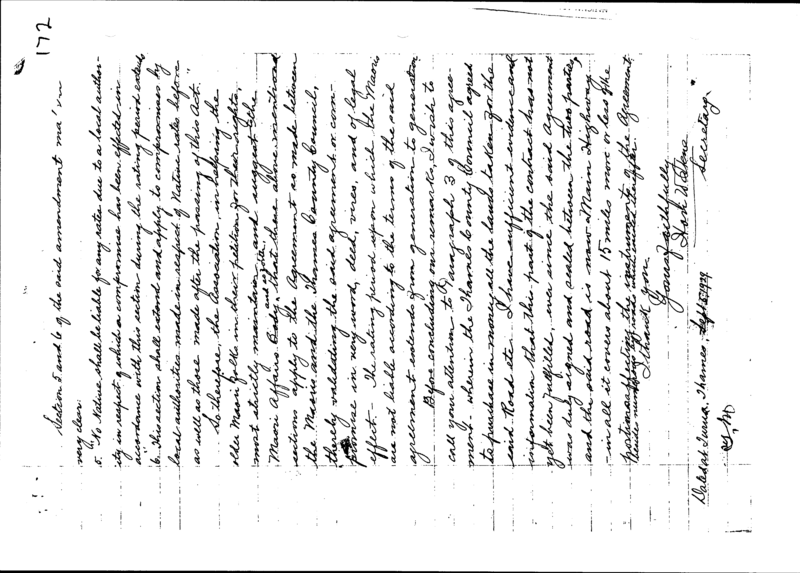 172
Section 5 and 6 of the said amendment
very clear.
5. "No Native shall be liable for any rate due to a local author-
ity in respect of which a compromise has been effected in
accordance with this section during the rating period
6. This section shall extend and apply to compromises by
local authorities made in respect of Native rates before
as well as those made after the passing of this Act."
So therefore, the Association, in helping the
older Maori folk in their petition for their rights,
most strictly maintain and suggest to the
Maori Affairs Body, that these above mentioned
sections apply to the Agreement as made between
the Maoris and the Thames County Council,
thereby validating the said agreement or com-
promise in very word, deed, vires, and of legal
effect. The rating period upon which the Maoris
are not liable according to the terms of the said
agreement extends from generation to generation.
Before concluding our remarks, I wish to
call your attention to paragraph 3 of this agree-
ment, wherein the Thames County Council agreed
to purchase in money all the lands taken for the
said Road etc. I have sufficient evidence and
information that this part of the contract has not
yet been fulfilled, ever since the said Agreement
was duly signed and sealed between the two parties,
and this said road is now Main Highway
- in all it covers about 15 miles more or less of the
I thank you.
Yours faithfully
Secretary.
Dated at Thames, Sept 5, 1939